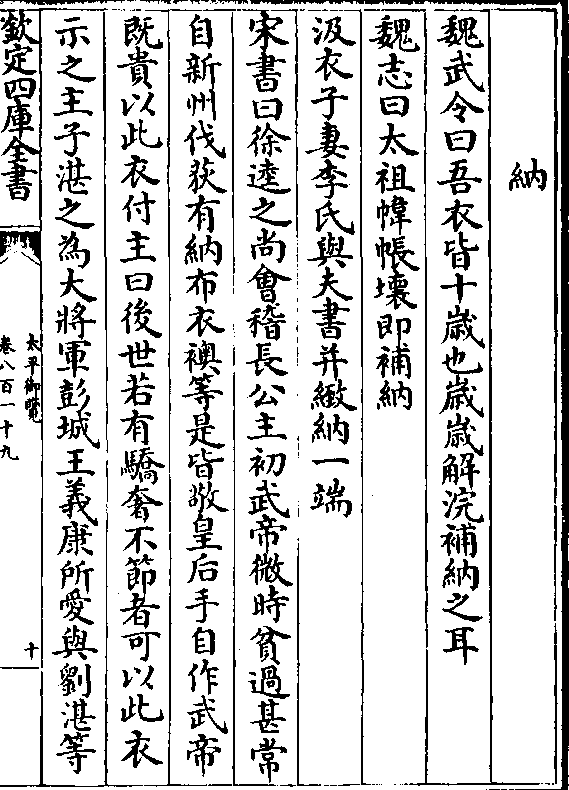 納
魏武令曰吾衣皆十歲也歲歲解浣補納之耳
魏志曰太祖幃帳壞即補納
汲衣子妻李氏與夫書并緻納一端
宋書曰徐逵之尚會稽長公主初武帝微時貧過甚常
自新州伐荻有納布衣襖等是皆敬皇后手自作武帝
既貴以此衣付主曰後世若有驕奢不節者可以此衣
示之主子湛之為大將軍彭城王義康所愛與劉湛等
欽定四庫全書
太平御覽
卷八百一十九
十